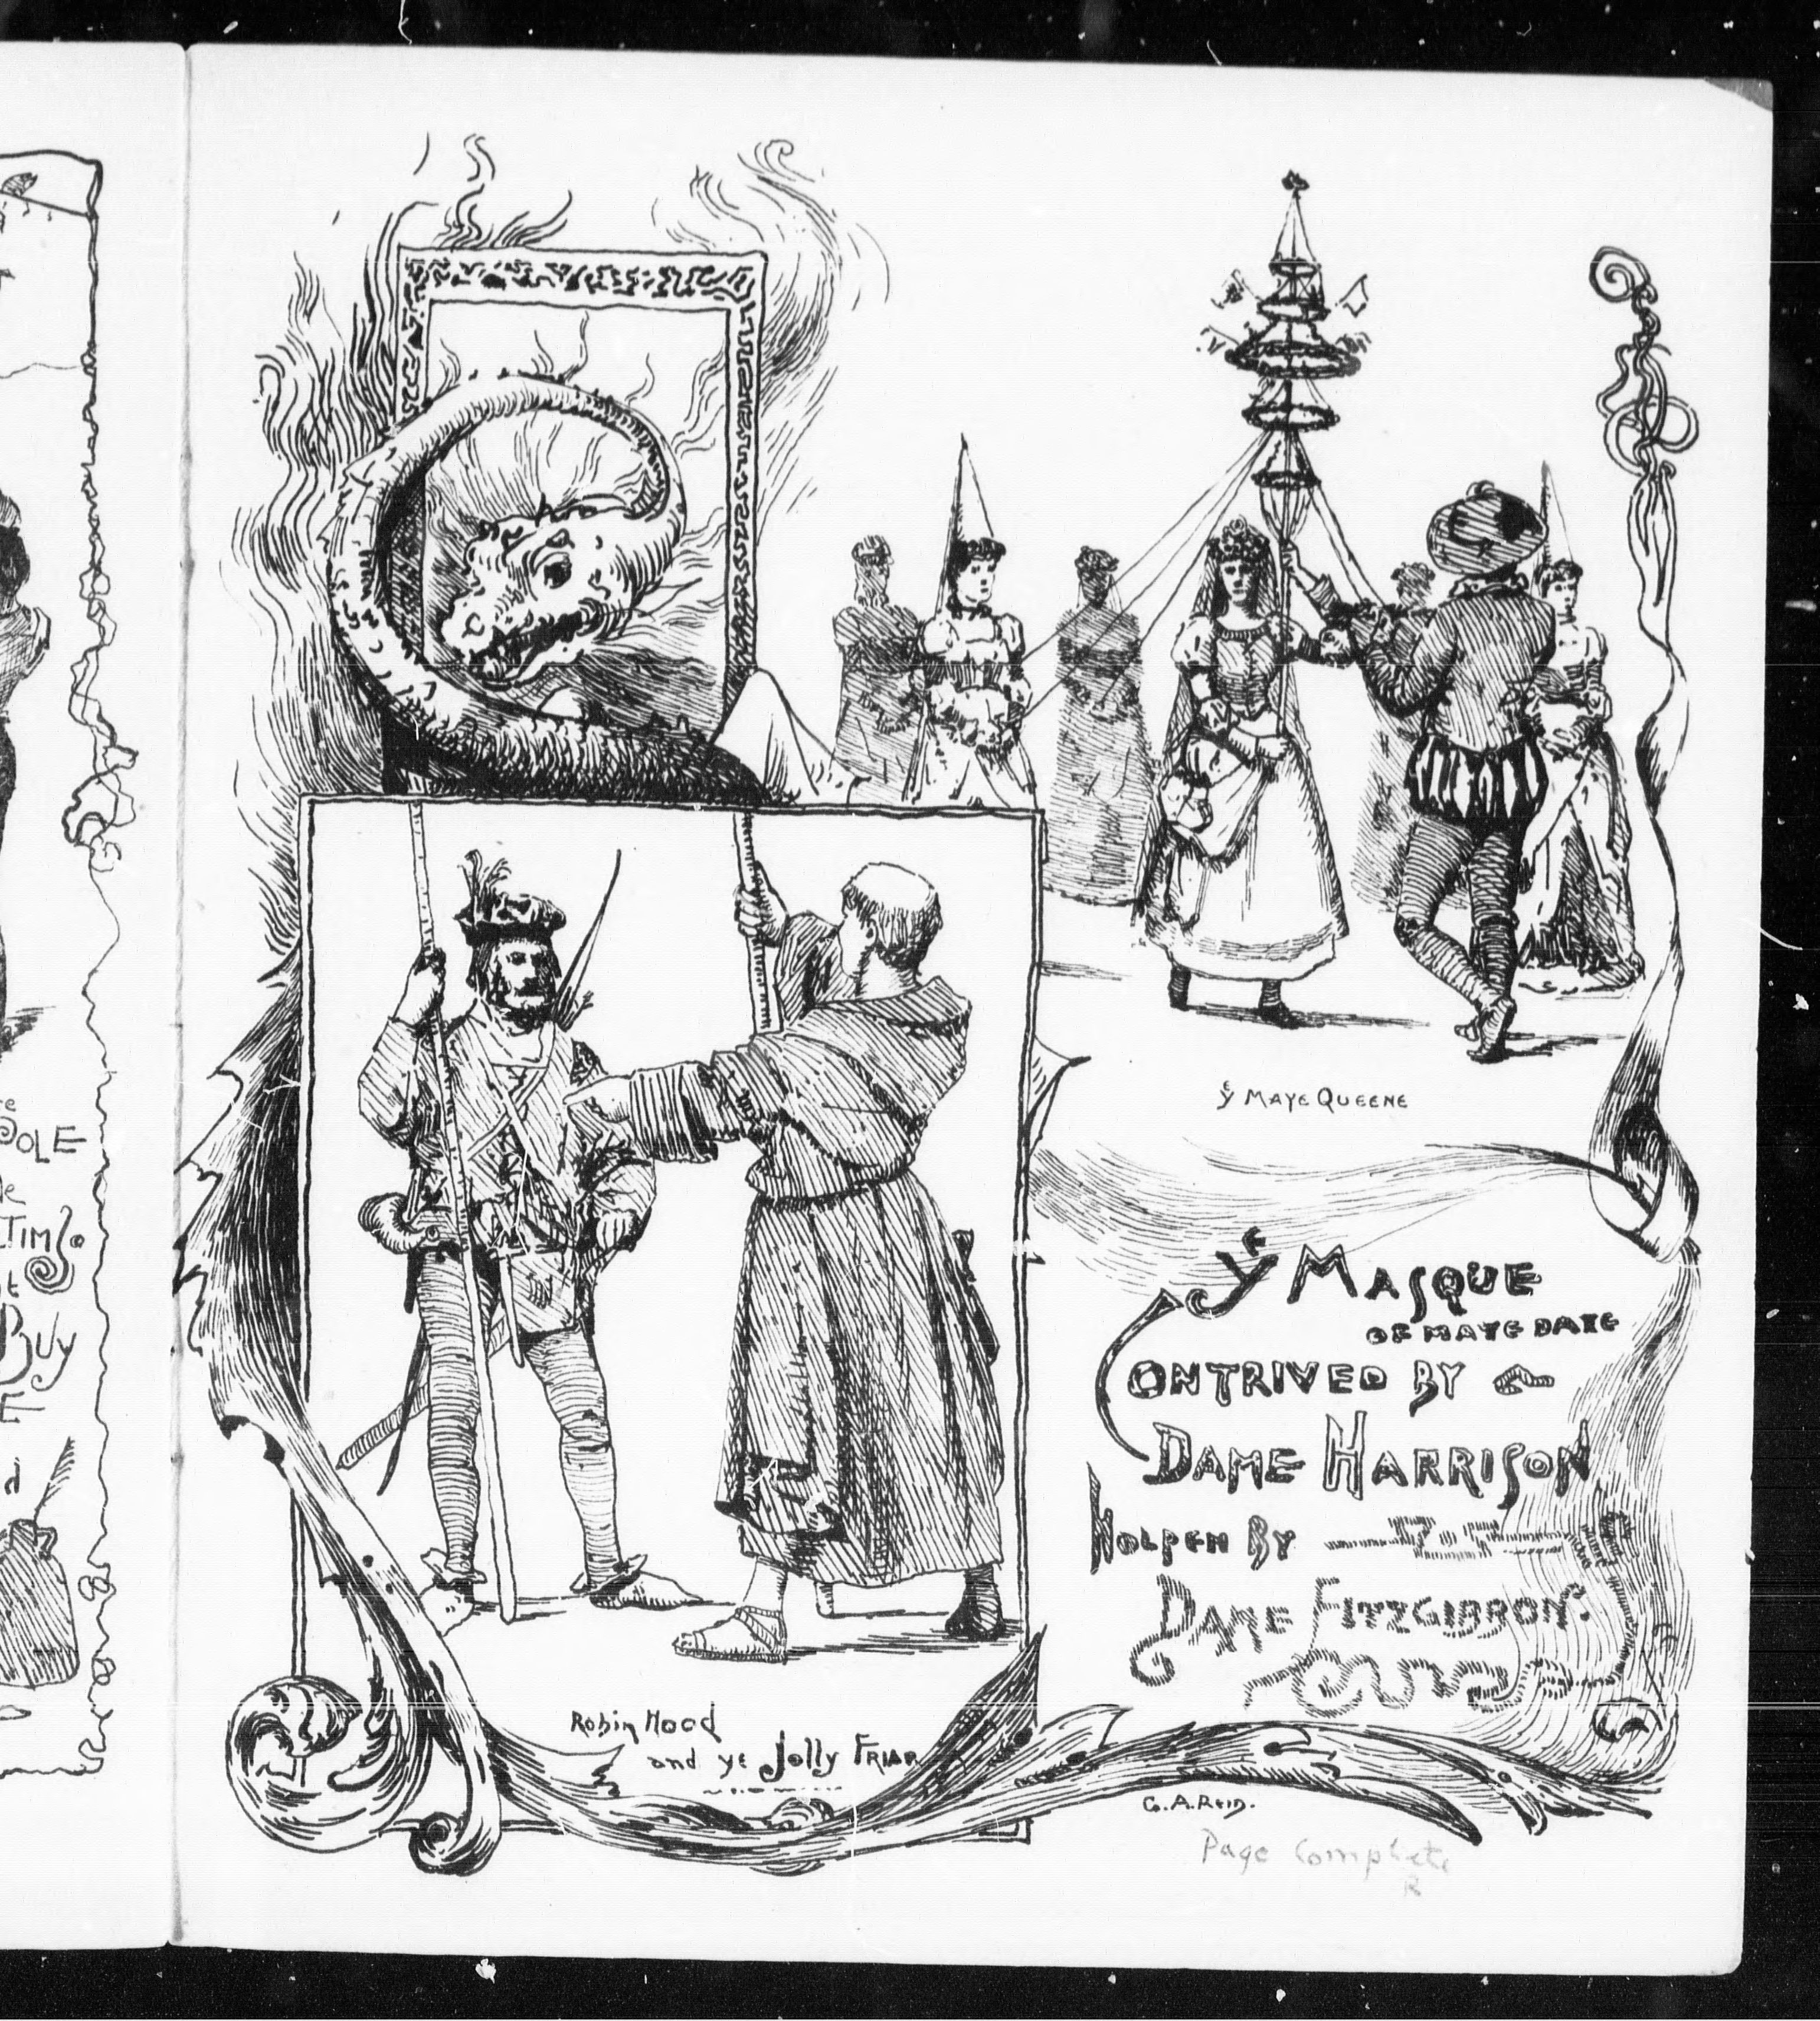 OLE
TIMS
Buy
E
d
yᵉ MAYE QUEENE
Yᵉ MASQUE
OF MAYE DAYE
CONTRIVED BY
DAME HARRISON
HOLPEN BY
DAME FITZGIBBON.
Robin Hood
and ye Jolly FRIAR
G. A. Reid.
Page Complete
R